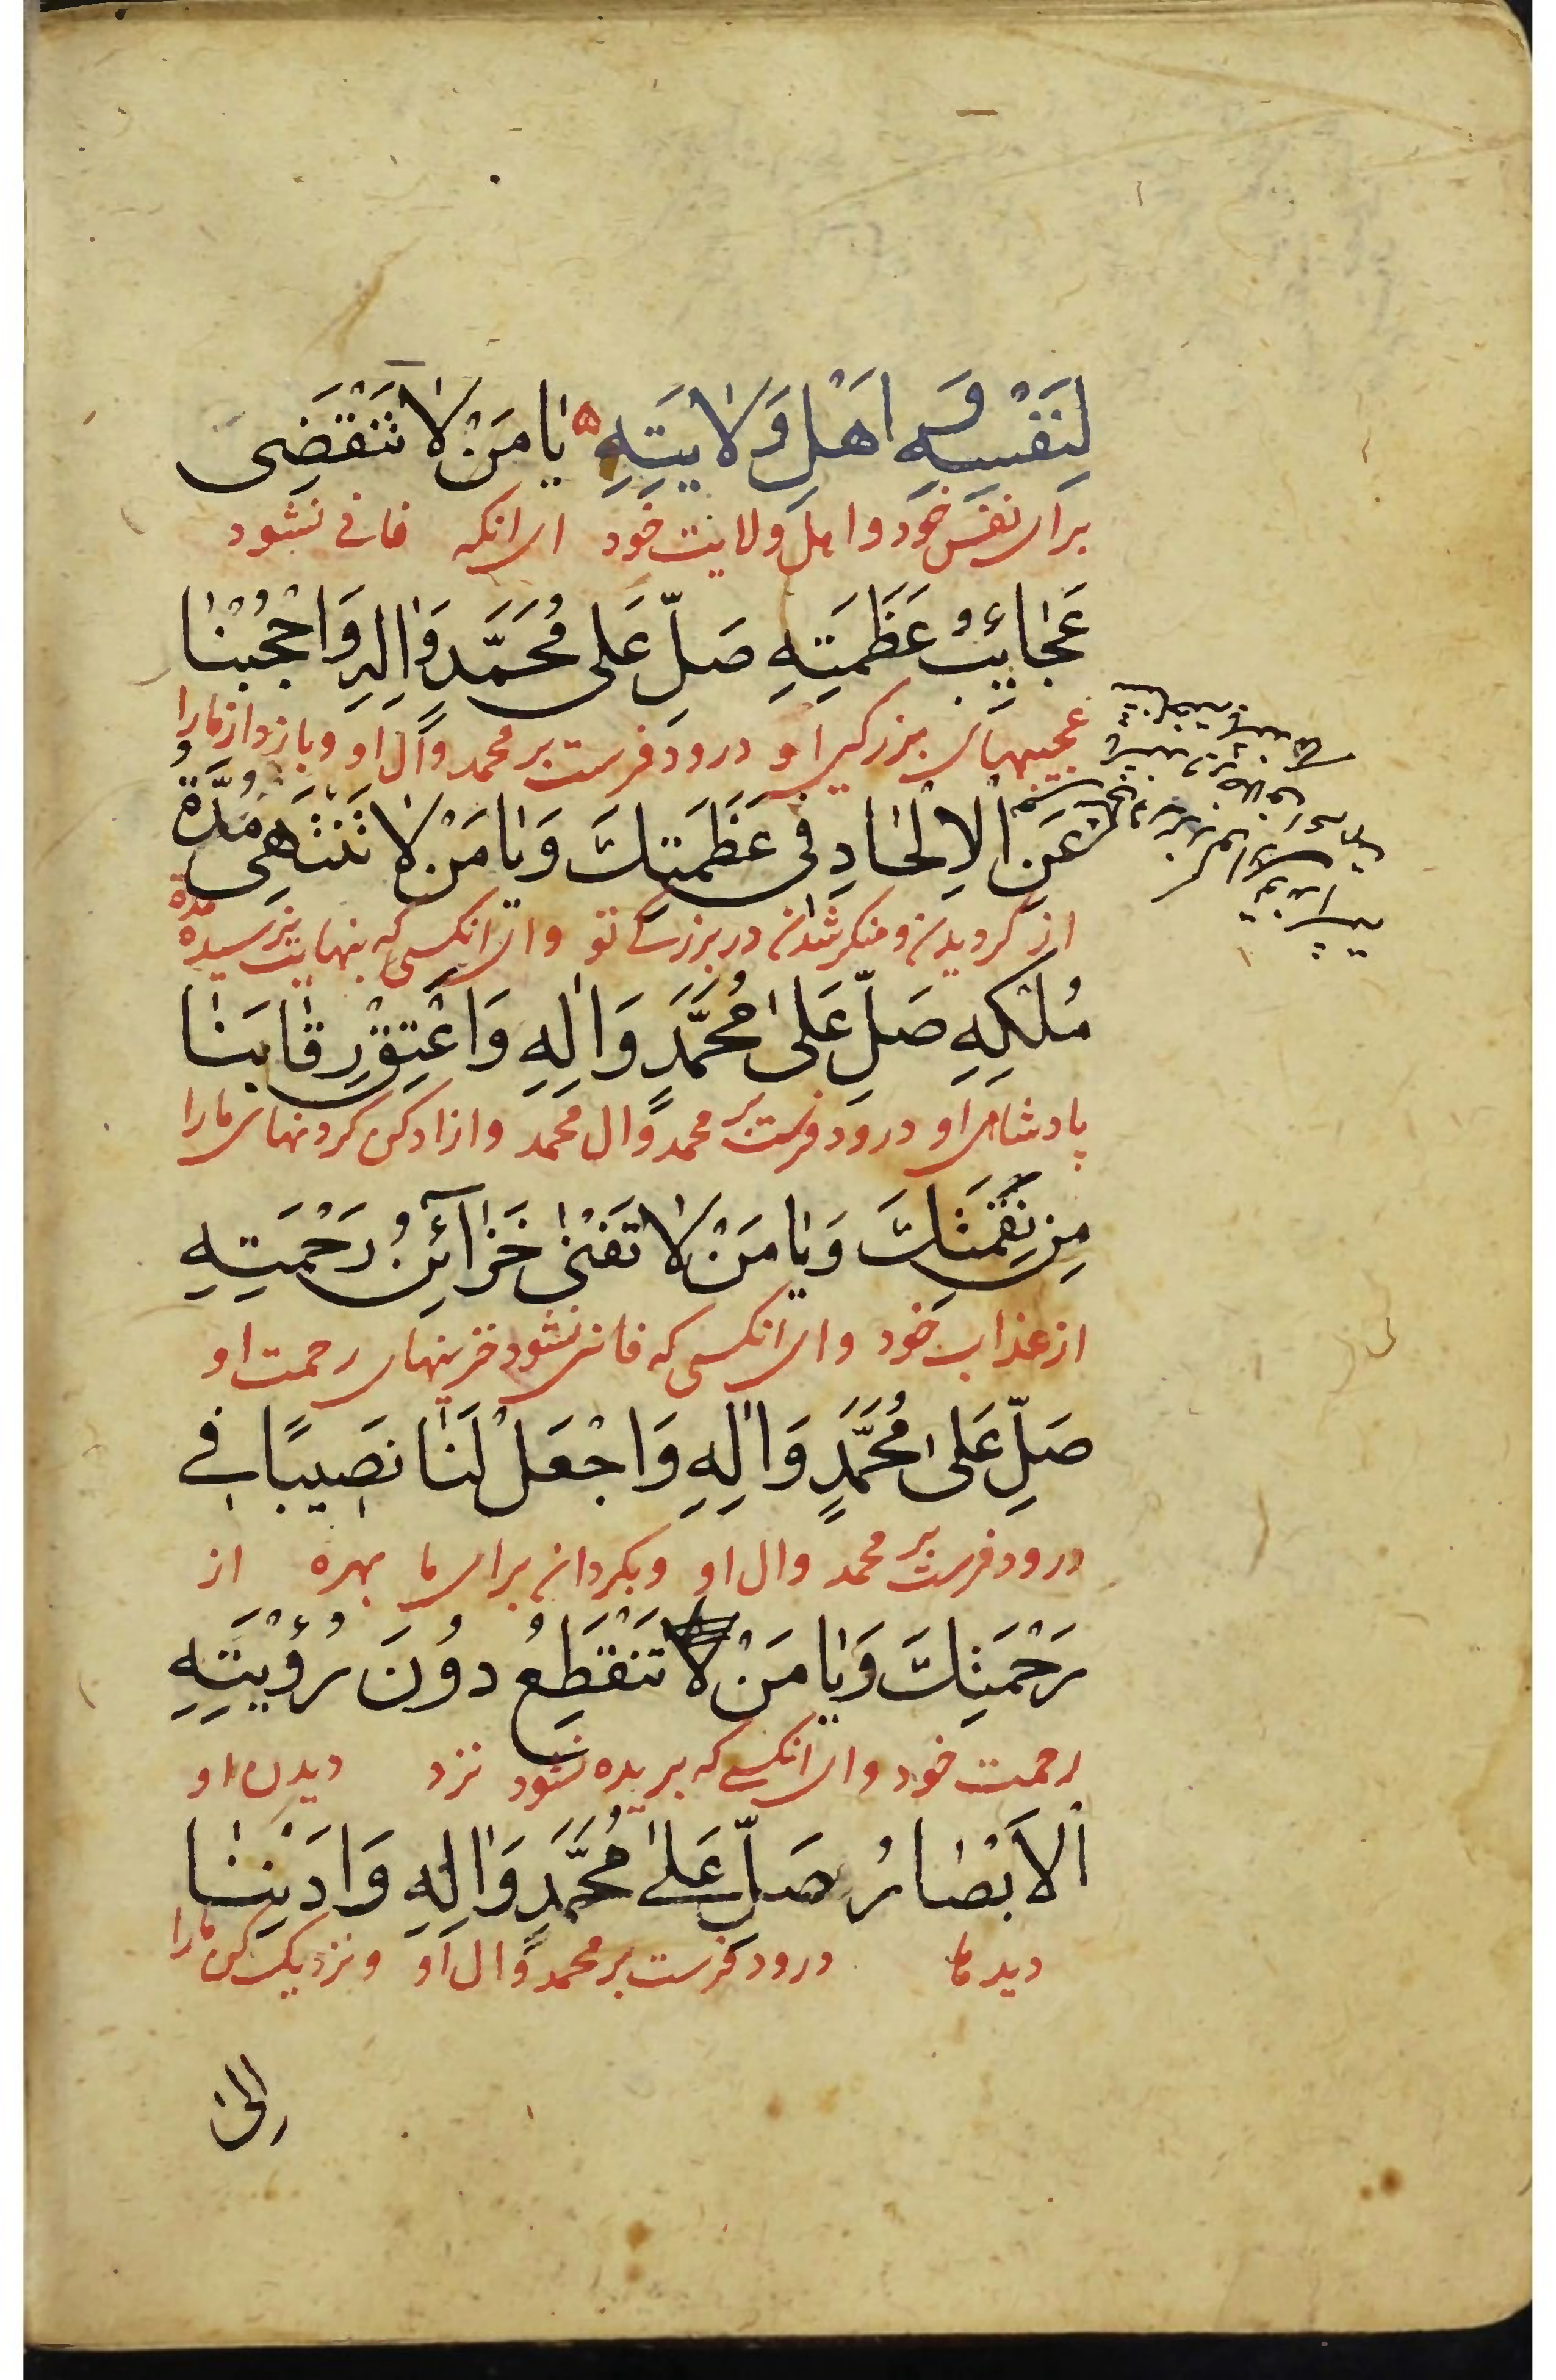 لِنَفْسِهِ وَ اَهْلِ وَلٰايَتِهِ ۵ يٰا مَنْ لٰا تَنْقَضِى
براى نفس خود و اهل ولايت خود اى انكه فانى نشود
عَجٰائِبُ عَظَمَتِهِ صَلِّ عَلى مُحَمَّدٍ وَاٰلِهِ وَاحْجُبْنٰا
عجيبهاى بزركى او درود فرست بر محمد و ال او و باز دار ما را
عَنِ الْاِلْحٰادِ فى عَظَمَتِكَ وَيٰا مَنْ لٰا تَنْتَهى مُدَّةُ
از كرديدن و منكر شدن در بزركى تو و اى انكسى كه بنهايت نرسيده مدة
مُلْكِهِ صَلِّ عَلىٰ مُحَمَّدٍ وَاٰلِهِ وَاَعْتِقْ رِقٰابَنٰا
پادشاهى او درود فرست بر محمد و ال محمد و ازاد كن كردنهاى ما را
مِنْ نَقِمَتِكَ وَيٰا مَنْ لٰا تَفْنىٰ خَزٰآئِنُ رَحْمَتِهِ
از عذاب خود و اى انكسى كه فانى نشود خزينهاى رحمت او
صَلِّ عَلىٰ مُحَمَّدٍ وَاٰلِهِ وَاجْعَلْ لَنٰا نَصِيبًا فى
درود فرست بر محمد و ال او و بكردان براى ما بهره از
رَحْمَتِكَ وَيٰا مَنْ لٰا تَنْقَطِعُ دُونَ رُؤْيَتِهِ
رحمت خود و اى انكسى كه بريده نشود نزد ديدن او
الْاَبْصٰارُ صَلِّ عَلىٰ مُحَمَّدٍ وَاٰلِهِ وَاَدْنِنٰا
ديدها درود فرست بر محمد و ال او و نزديك كن ما را
اِلىٰ